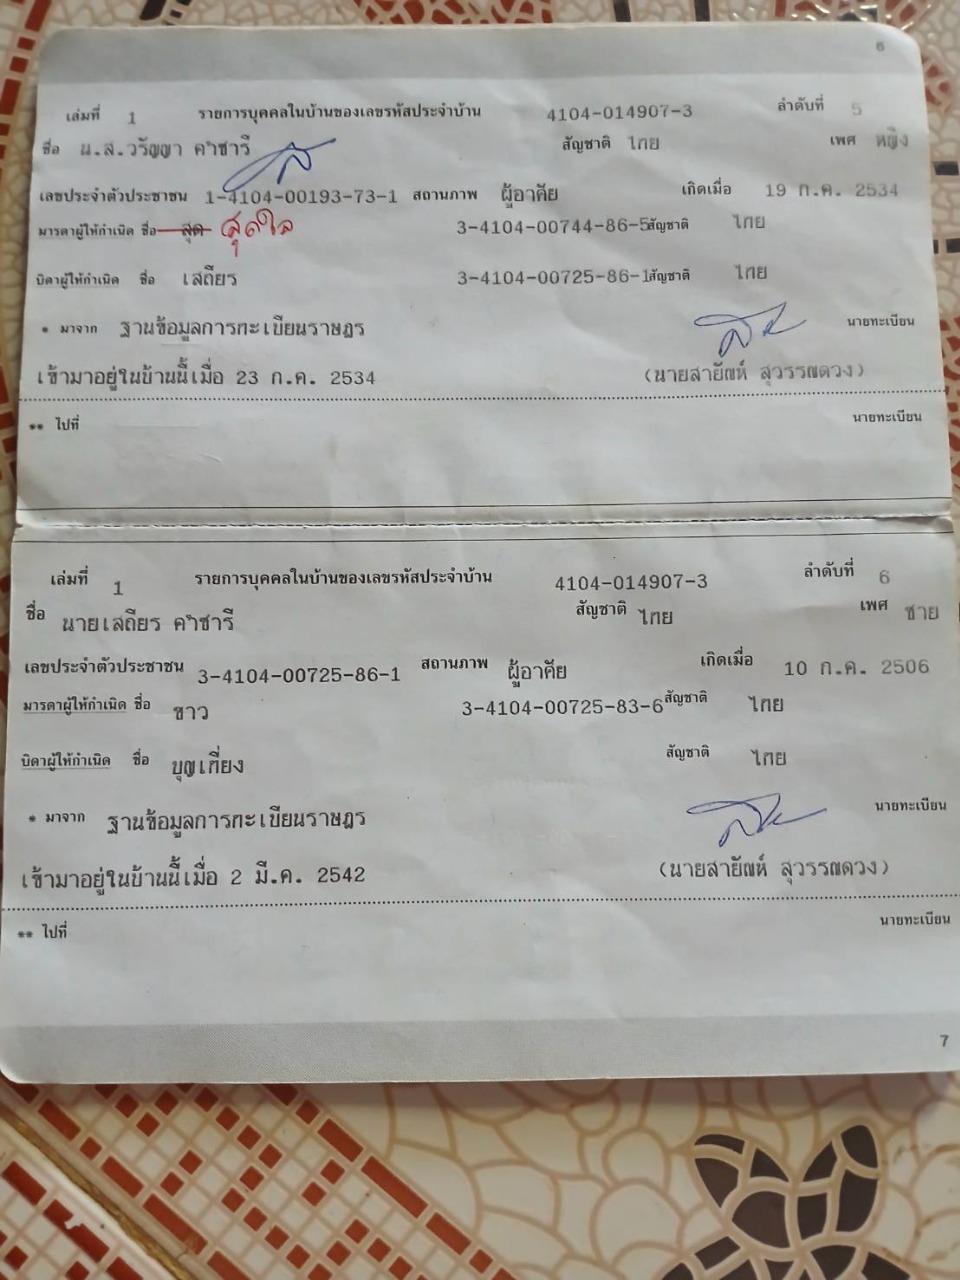 6
เล่มที่ 1 รายการบุคคลในบ้านของเลขรหัสประจำบ้าน 4104-014907-3 ลำดับที่ 5
ชื่อ น.ส.วรัญญา คำชารี สัญชาติ ไทย เพศ หญิง
เลขประจำตัวประชาชน 1-4104-00193-73-1 สถานภาพ ผู้อาศัย เกิดเมื่อ 19 ก.ค. 2534
มารดาผู้ให้กำเนิด ชื่อ สุด สุดใจ 3-4104-00744-86-5 สัญชาติ ไทย
บิดาผู้ให้กำเนิด ชื่อ เสถียร 3-4104-00725-86-1 สัญชาติ ไทย
* มาจาก ฐานข้อมูลการทะเบียนราษฎร นายทะเบียน
เข้ามาอยู่ในบ้านนี้เมื่อ 23 ก.ค. 2534 (นายสายัณห์ สุวรรณดวง)
** ไปที่ นายทะเบียน
เล่มที่ 1 รายการบุคคลในบ้านของเลขรหัสประจำบ้าน 4104-014907-3 ลำดับที่ 6
ชื่อ นายเสถียร คำชารี สัญชาติ ไทย เพศ ชาย
เลขประจำตัวประชาชน 3-4104-00725-86-1 สถานภาพ ผู้อาศัย เกิดเมื่อ 10 ก.ค. 2506
มารดาผู้ให้กำเนิด ชื่อ ขาว 3-4104-00725-83-6 สัญชาติ ไทย
บิดาผู้ให้กำเนิด ชื่อ บุญเที่ยง สัญชาติ ไทย
* มาจาก ฐานข้อมูลการทะเบียนราษฎร นายทะเบียน
เข้ามาอยู่ในบ้านนี้เมื่อ 2 มี.ค. 2542 (นายสายัณห์ สุวรรณดวง)
** ไปที่ นายทะเบียน
7